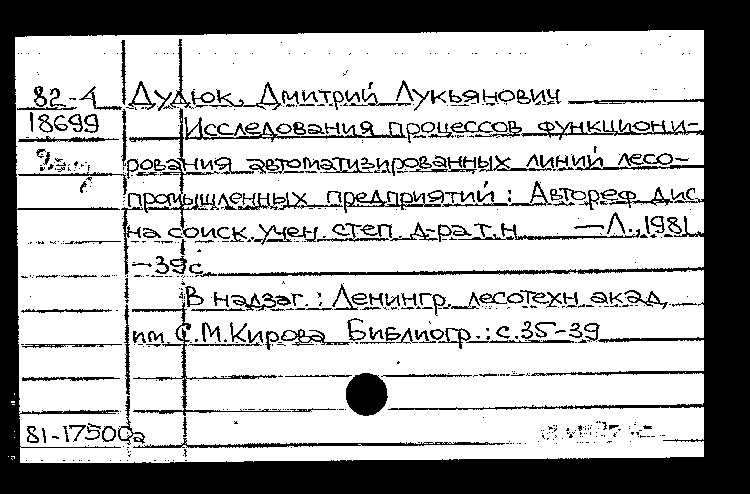 82-4 Дудюк, Дмитрий Лукьянович
18699 Исследования процессов функциони-
рования автоматизированных линий лесо-
промышленных предприятий: Автореф дис.
на соиск. учен. степ. д-ра т.н. —Л., 1981.
—39с.
В надзаг.: Ленингр. лесотехн акад,
им. С.М.Кирова Библиогр.: с.35-39
81-17500а